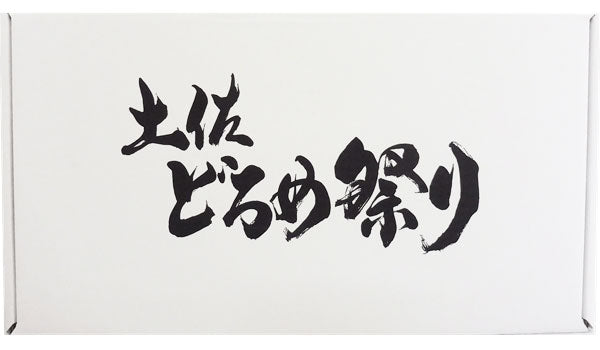 土佐
どろめ祭り